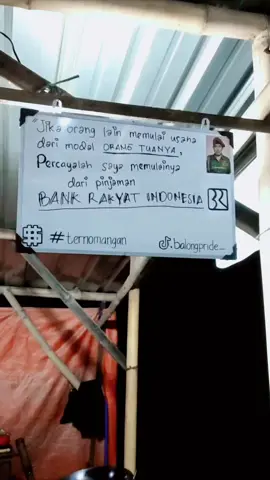 Jika orang lain memulai usaha
dari modal ORANG TUANYA,
Percayalah saya memulainya
dari pinjaman
BANK RAKYAT INDONESIA
#ternomangan
.balongpride_